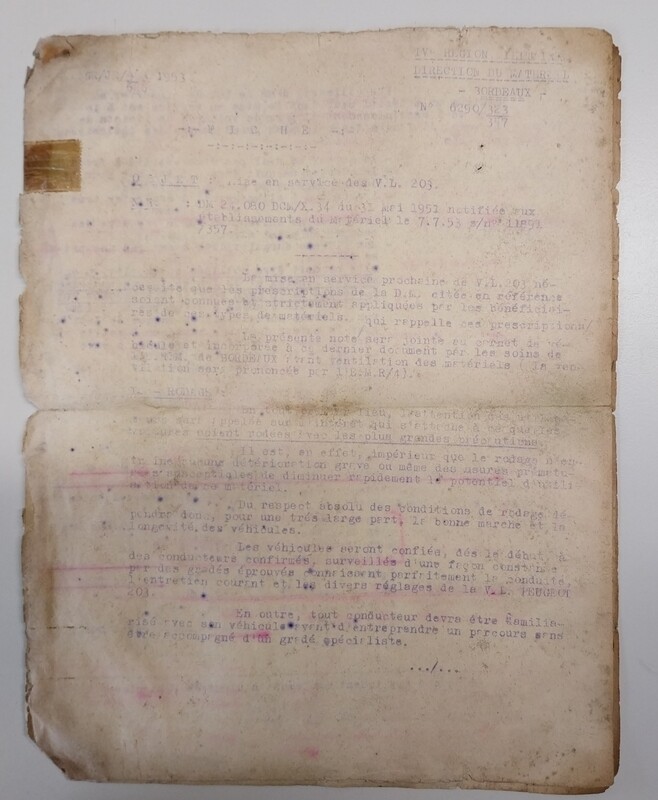 IV° REGION MILITAIRE
DIRECTION DU MATERIEL
1953
- BORDEAUX -
N° 0290/
-: F I C H E -:
-:-:-:-:-:-:-
O B J E T : Mise en service des V.L. 203.
: DM 24.080 DCM/X.34 du 31 Mai 1951 notifiée aux
établissements du Matériel le 7.7.53 s/n° 11892
/357.
La mise en service prochaine de V.L. 203 né-
cessite que les prescriptions de la D.M. citée en référence
soient connues et strictement appliquées par les bénéficiai-
res de ces types de matériels. qui rappelle ces prescriptions/
La présente note sera jointe au carnet de vé-
hicule et incorporée à ce dernier document par les soins de
de BORDEAUX avant ventilation des matériels ( la
sera prononcée par
- RODAGE :
l'intérêt qui s'attache à ce que les
soient rodées avec les plus grandes précautions.
Il est, en effet, impérieux que le rodage n'en-
détérioration grave ou même des usures prématu-
rées susceptibles de diminuer rapidement le potentiel d'utili-
sation de ce matériel.
Du respect absolu des conditions de rodage dé-
pendra donc, pour une très large part, la bonne marche et la
longévité des véhicules.
Les véhicules seront confiés, dès le début, à
des conducteurs confirmés, surveillés d'une façon constante
par des gradés éprouvés connaissant parfaitement la conduite,
l'entretien courant et les divers réglages de la V.L. PEUGEOT
203.
En outre, tout conducteur devra être familia-
risé avec son véhicule avant d'entreprendre un parcours sans
être accompagné d'un gradé spécialiste.
.../...